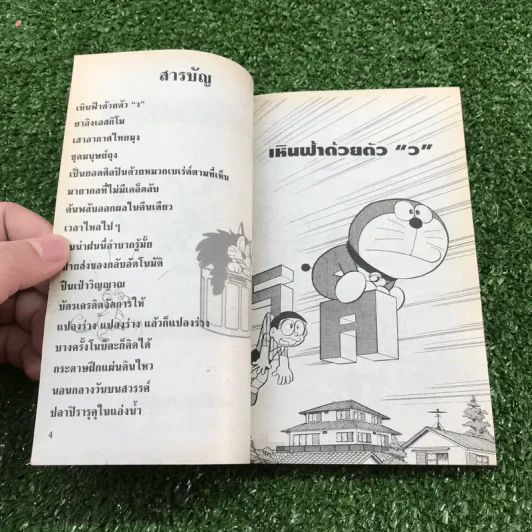 สารบัญ
เหินฟ้าด้วยตัว "ว"
ยาลิงเลสกิโม
เสาอากาศไทยมุง
ชุดมนุษย์ถุง
เป็นยอดศิลปินด้วยหมวกเบเร่ต์ตามที่เห็น
มายากลที่ไม่มีเคล็ดลับ
ต้นพลับออกผลในคืนเดียว
เวลาไหลไป ๆ
นน่าฝนนี่ลำบากรู้มั้ย
ส่งของกลับอัตโนมัติ
ปืนเป่าวิญญาณ
บัตรเครดิตจัดการให้
แปลงร่าง แปลงร่าง แล้วก็แปลงร่าง
บางครั้งโนบิตะก็คิดได้
กระดาษฝึกแผ่นดินไหว
นอนกลางวันบนสวรรค์
ปลาปิรารุคุในแอ่งน้ำ
4
เหินฟ้าด้วยตัว "ว"